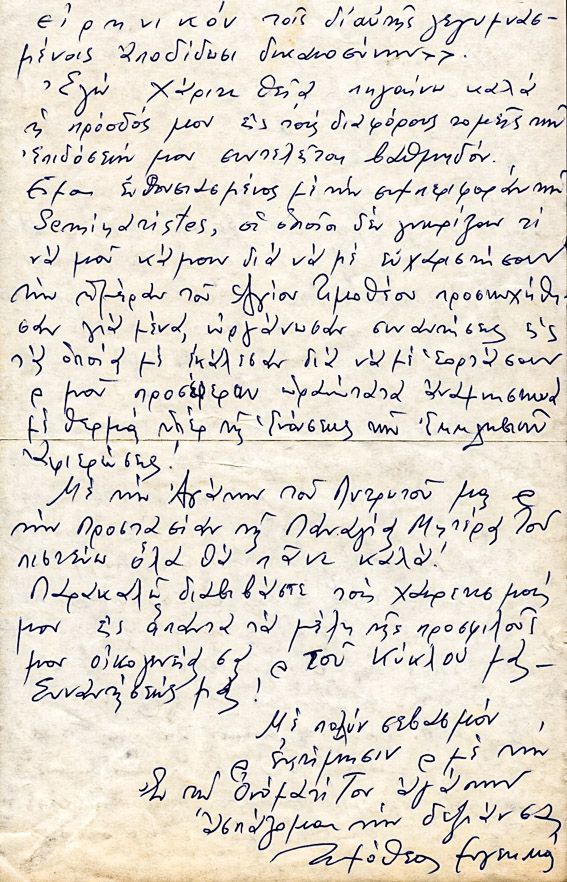 εἰρηνικόν τοῖς δι' αὐτῆς γεγυμνασ-
μένοις ἀποδίδωσι δικαιοσύνης>>.
Ἐγώ Χάριτι Θεία πηγαίνω καλά
ἡ πρόοδος μου εἰς τούς διαφόρους τομεῖς τῶν
ἐπιδόσεών μου συντελεῖται βαθμηδόν.
Εἶμαι ἐνθουσιασμένος μέ τήν συμπεριφοράν τῶν
Seminaristes, οἱ ὁποῖοι δέν γνωρίζουν τί
νά μοῦ κάμουν διά νά μέ εὐχαριστήσουν
τήν ἡμέραν τοῦ Ἁγίου Τιμοθέου προσευχήθη-
σαν γιά μένα, ὠργάνωσαν συναντήσεις εἰς
τάς ὁποίας μέ ἐκάλεσαν διά νά μέ ἑορτάσουν
καί μοῦ προσέφεραν ὡραιότατα ἀναμνηστικά
μέ θερμάς ὑπέρ τῆς Ἑνώσεως τῶν Ἐκκλησιῶν
ἀφιερώσεις!
Μέ τήν Ἀγάπην τοῦ Λυτρωτοῦ μας καί
τήν Προστασίαν τῆς Παναγίας Μητέρας Του
πιστεύω ὅλα θά πᾶνε καλά!
Παρακαλῶ διαβιβάστε τούς χαιρετισμούς
μου εἰς ἅπαντα τά μέλη τῆς προσφιλοῦς
μου οἰκογενείας σας καί τοῦ Κύκλου μας –
Συναντήσεώς μας!
Μέ πολύν σεβασμόν
καί ἐκτίμησιν καί μέ τήν
ἐν τῷ Ὀνόματί Του ἀγάπην
ἀσπάζομαι τήν δεξιάν σας
Τιμόθεος